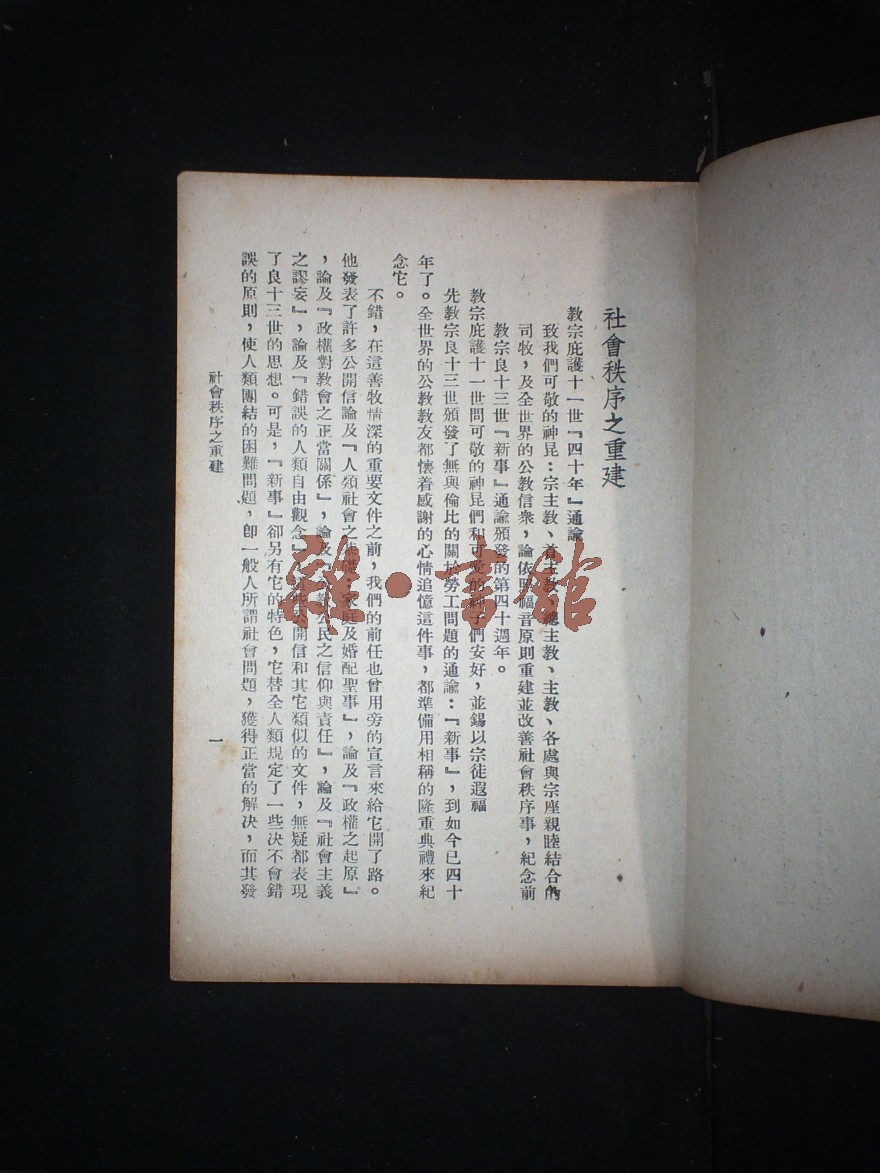 社會秩序之重建
教宗庇護十一世『四十年』通諭
致我們可敬的神昆：宗主教、首主教、總主教、主教、各處與宗座親睦結合的
司牧，及全世界的公教信衆，論依照福音原則重建並改善社會秩序事，紀念前
教宗良十三世『新事』通諭頒發的第四十週年。
教宗庇護十一世問可敬的神昆們和可愛的神子們安好，並錫以宗徒遐福
先教宗良十三世頒發了無與倫比的關於勞工問題的通諭：『新事』，到如今已四十
年了。全世界的公教教友都懷着感謝的心情追憶這件事，都準備用相稱的隆重典禮來紀
念它。
不錯，在這善牧情深的重要文件之前，我們的前任也曾用旁的宣言來給它開了路。
他發表了許多公開信論及『人類社會之基礎：家庭及婚配聖事』，論及『政權之起原』
，論及『政權對教會之正當關係』，論及『公民之信仰與責任』，論及『社會主義
之謬妄』，論及『錯誤的人類自由觀念』，公開信和其它類似的文件，無疑都表現
了良十三世的思想。可是，『新事』卻另有它的特色，它替全人類規定了一些決不會錯
誤的原則，使人類團結的困難問題，卽一般人所謂社會問題，獲得正當的解決，而其發
社會秩序之重建
一
雜·書館